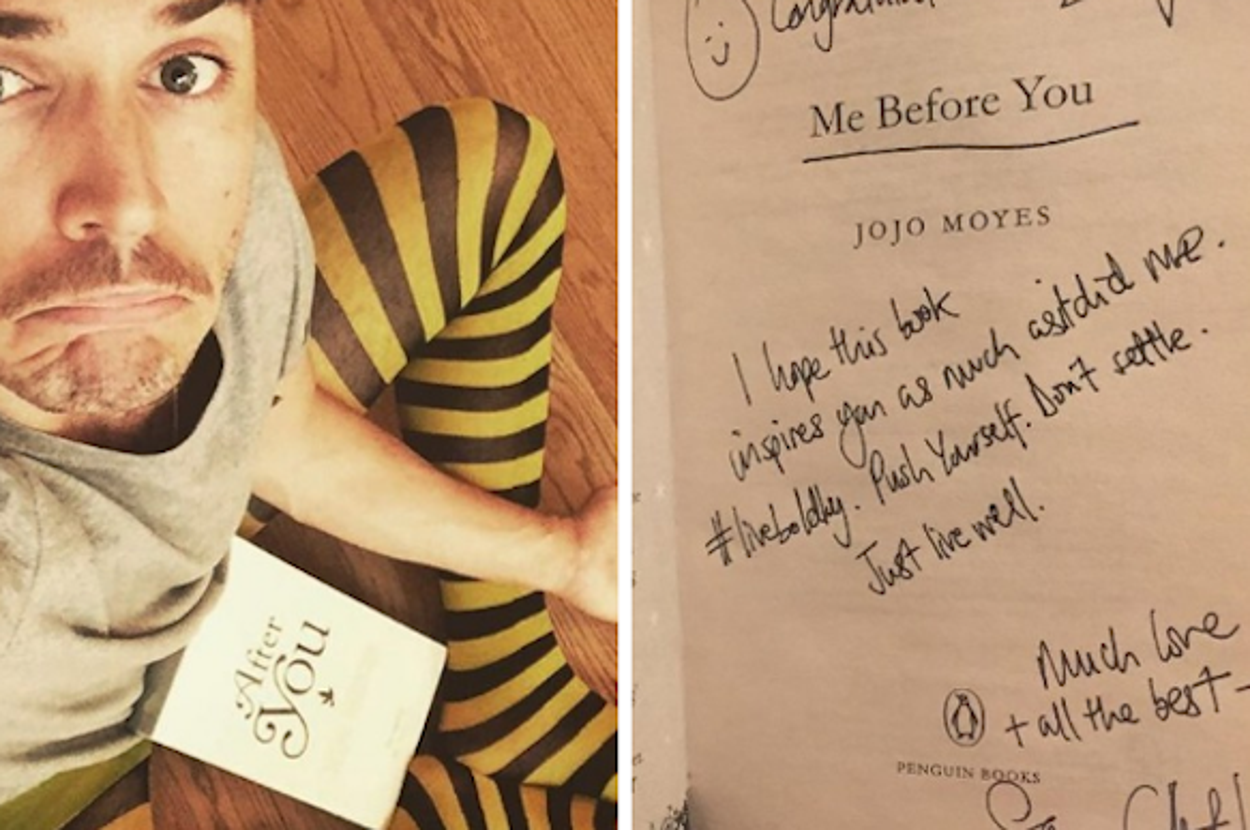 After
You
Me Before You
JOJO MOYES
I hope this book
inspires you as much as it did me.
#liveboldly. Push Yourself. Don't settle.
Just live well.
Much love
+ all the best -
PENGUIN BOOKS